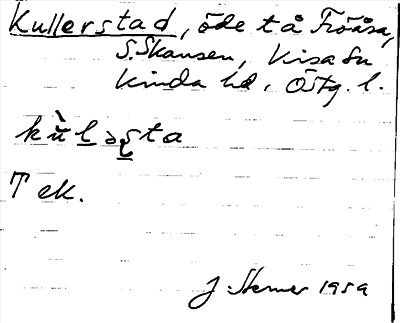 Kullerstad, öde t å Fröåsa,
S. Skansen, Kisa sn
Kinda hd, Östg. l.
kùḷəʂta
T ek.
J. Sterner 1959